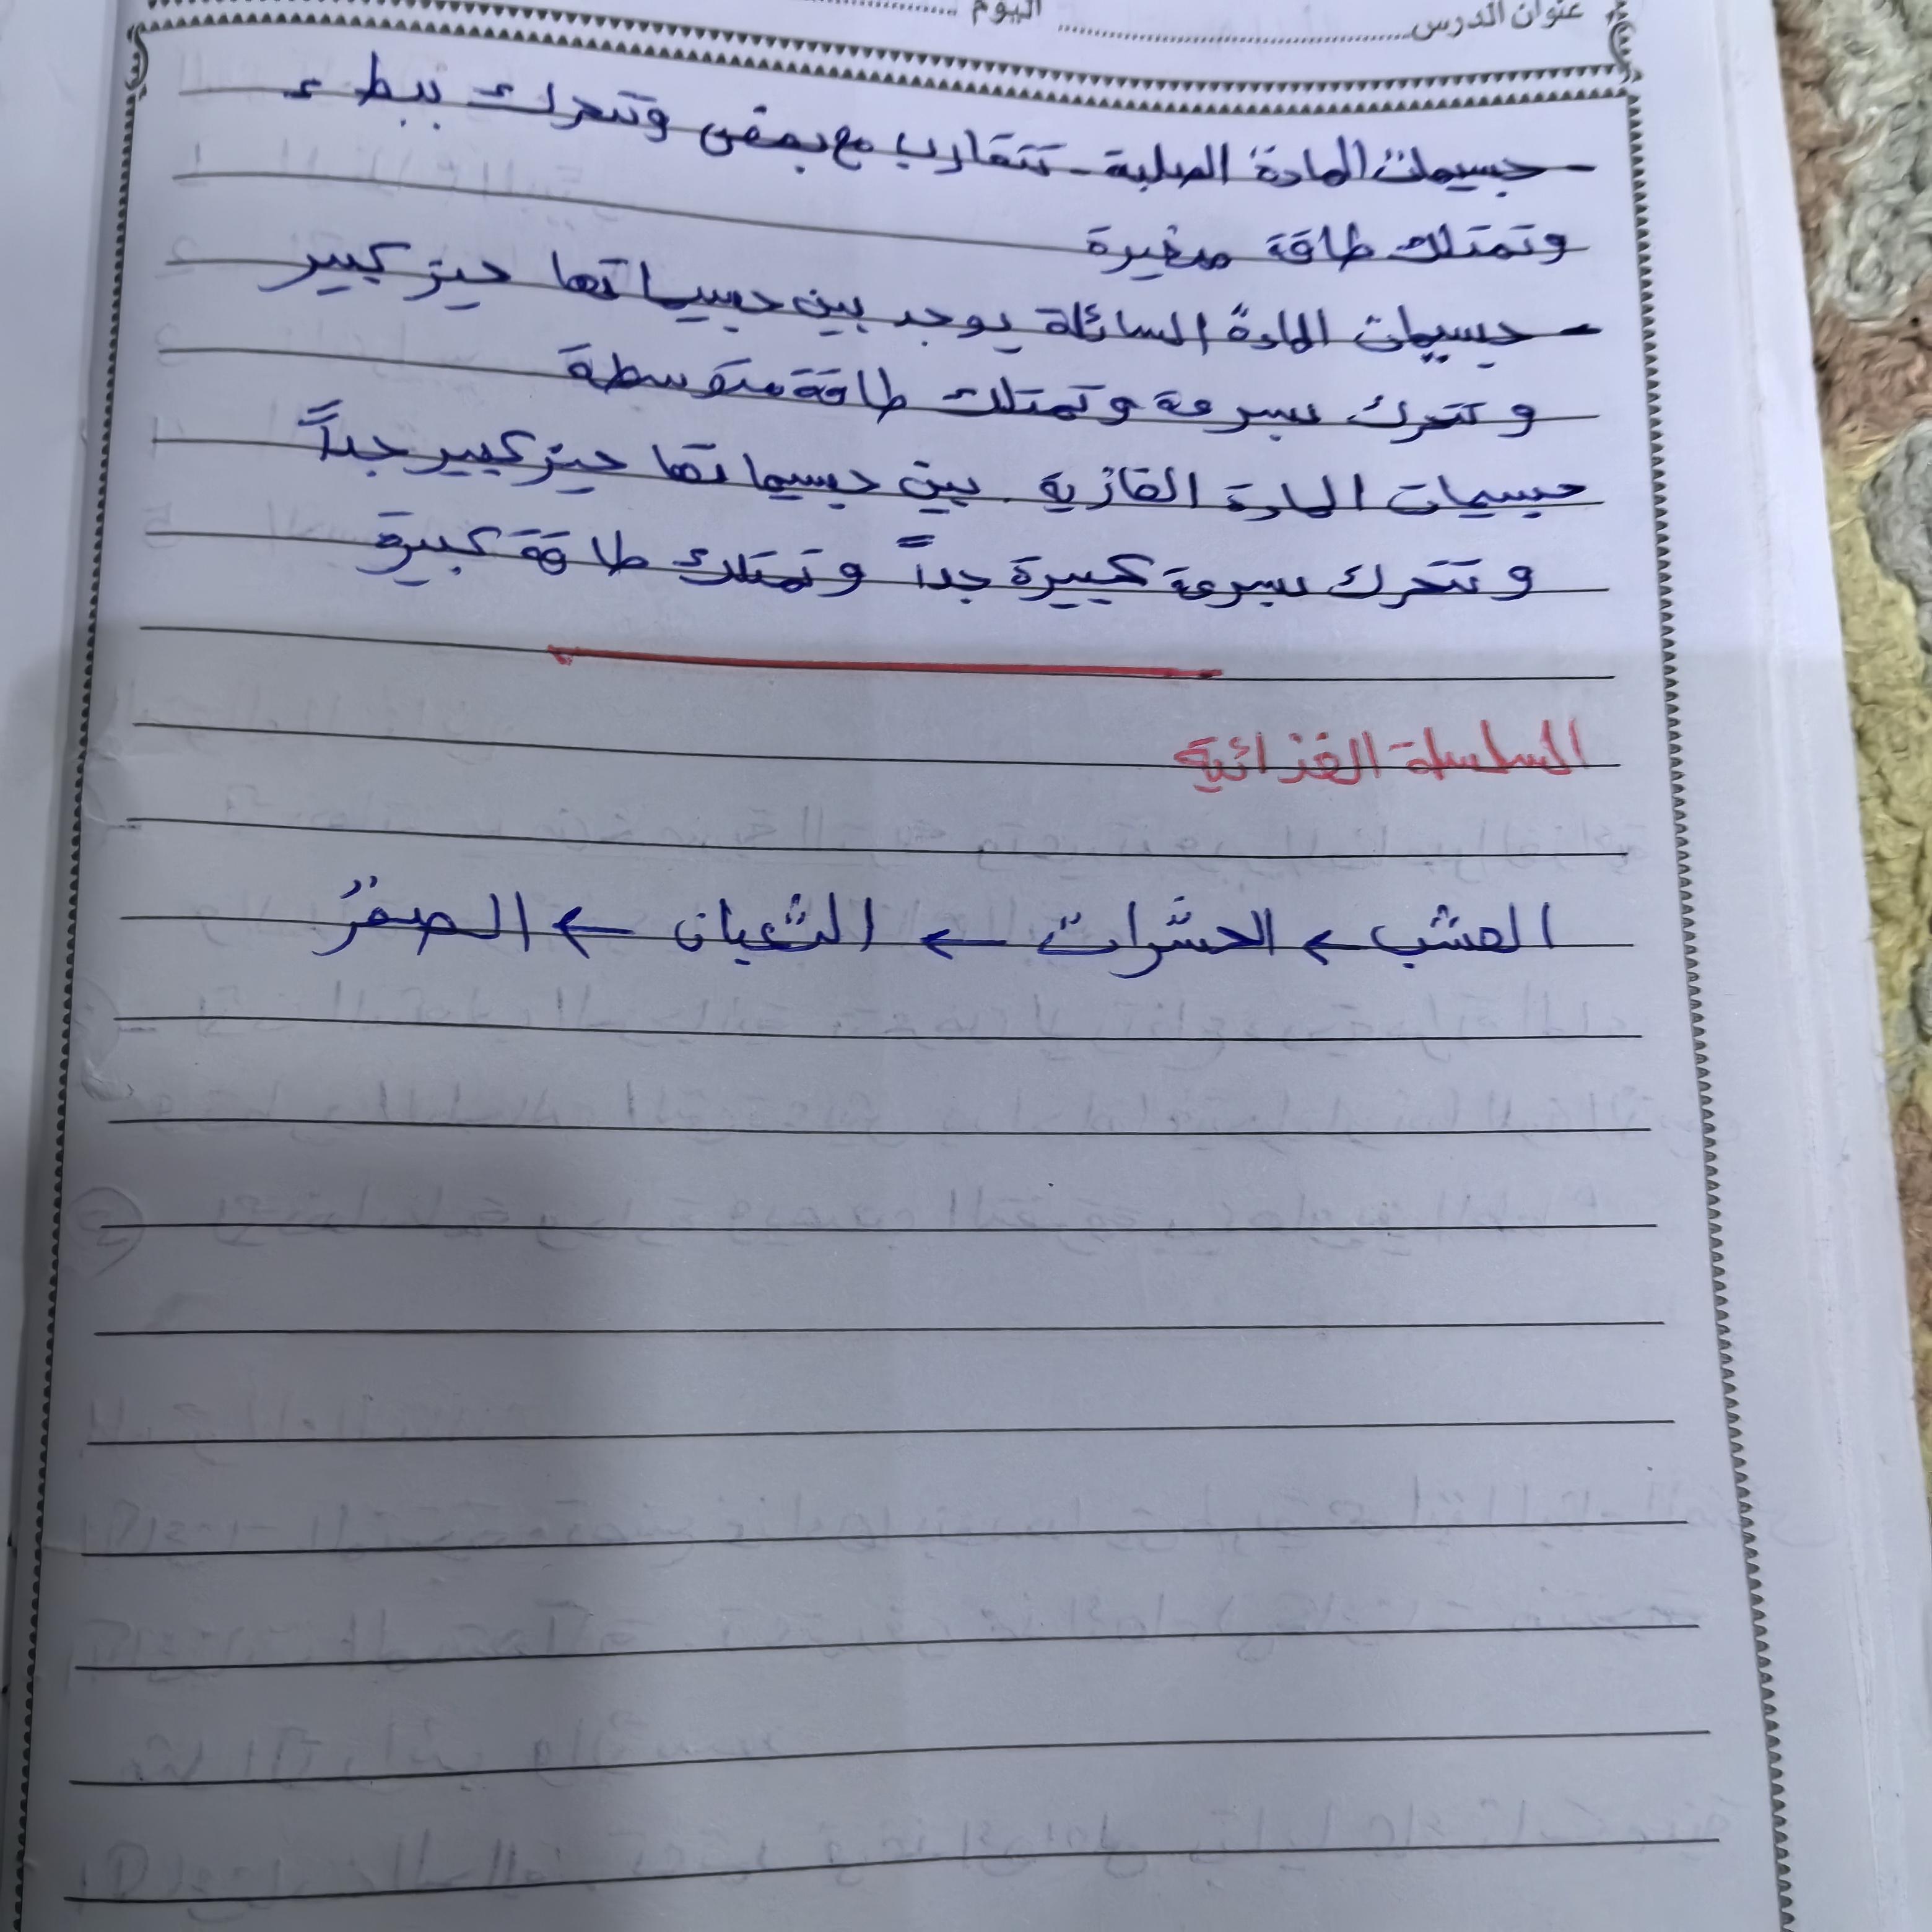 عنوان الدرس ........................ اليوم ........................
- جسيمات المادة الصلبة - تتقارب مع بعض وتتحرك ببطء
وتمتلك طاقة صغيرة
- جسيمات المادة السائلة يوجد بين جسيماتها حيز كبير
و تتحرك بسرعة و تمتلك طاقة متوسطة
جسيمات المادة الغازية . بين جسيماتها حيز كبير جداً
و تتحرك بسرعة كبيرة جداً و تمتلك طاقة كبيرة
السلسلة الغذائية
العشب ← الحشرات ← الثعبان ← الصقر